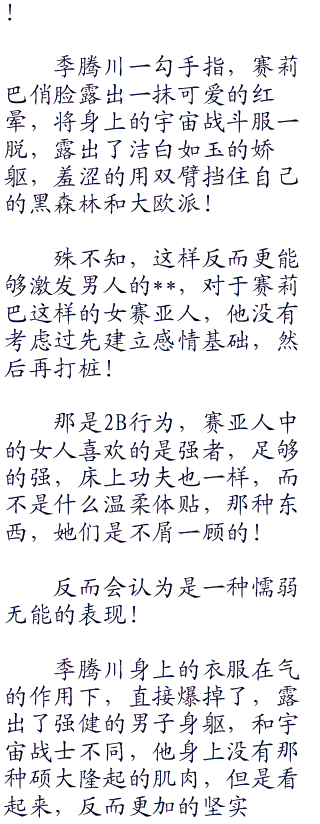 !
季腾川一勾手指，赛莉
巴俏脸露出一抹可爱的红
晕，将身上的宇宙战斗服一
脱，露出了洁白如玉的娇
躯，羞涩的用双臂挡住自己
的黑森林和大欧派！
殊不知，这样反而更能
够激发男人的**，对于赛莉
巴这样的女赛亚人，他没有
考虑过先建立感情基础，然
后再打桩！
那是2B行为，赛亚人中
的女人喜欢的是强者，足够
的强，床上功夫也一样，而
不是什么温柔体贴，那种东
西，她们是不屑一顾的！
反而会认为是一种懦弱
无能的表现！
季腾川身上的衣服在气
的作用下，直接爆掉了，露
出了强健的男子身躯，和宇
宙战士不同，他身上没有那
种硕大隆起的肌肉，但是看
起来，反而更加的坚实